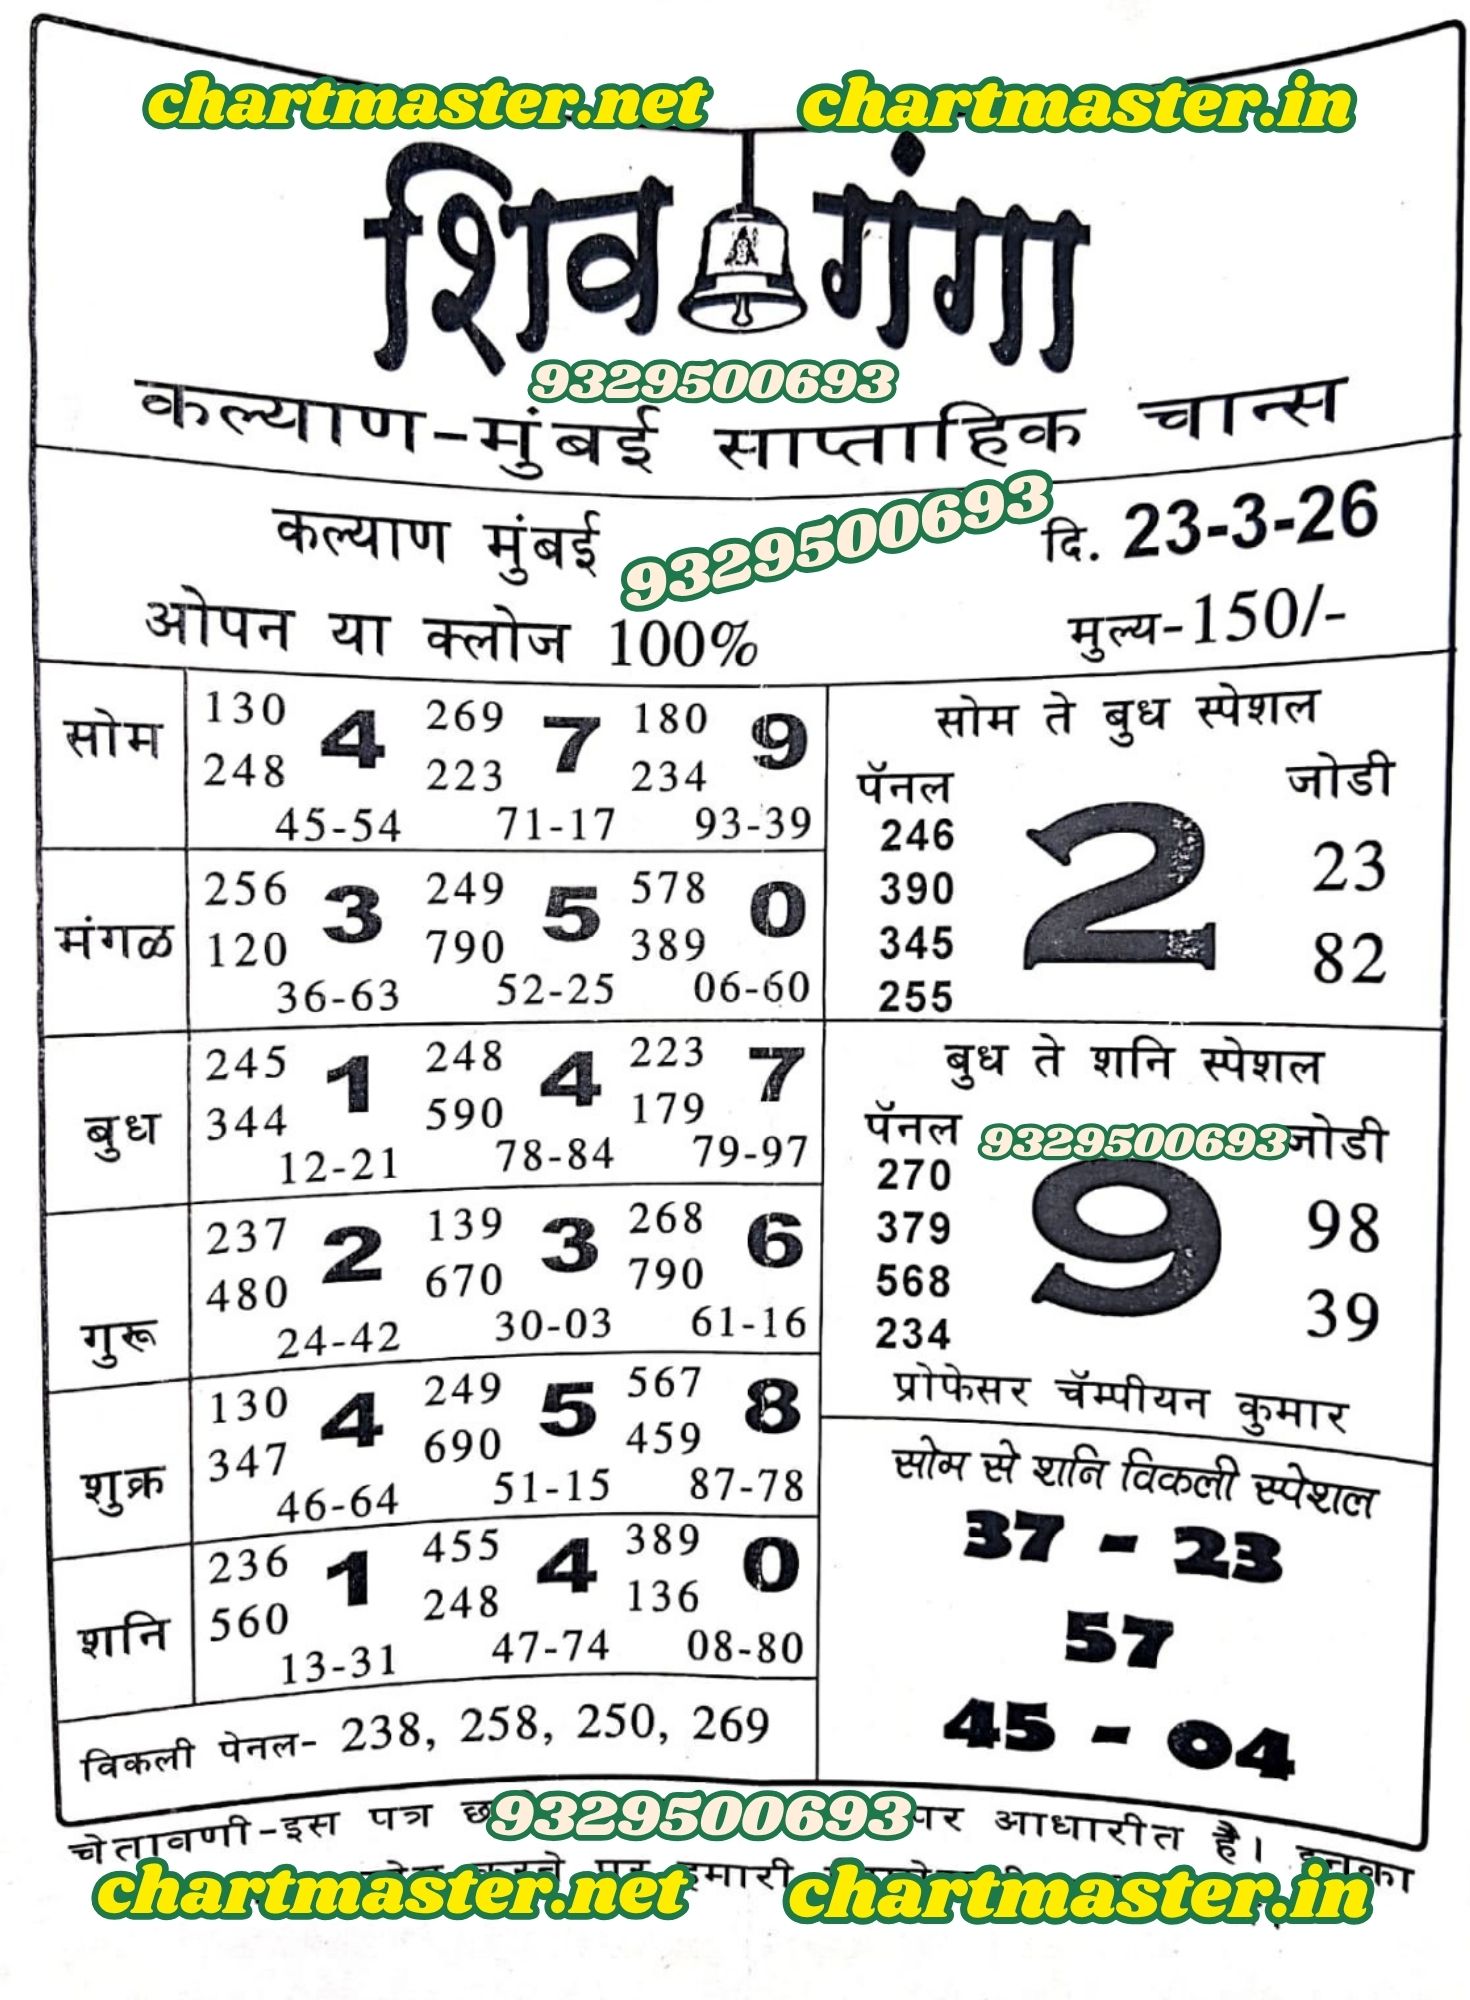 chartmaster.net chartmaster.in
शिव गंगा
9329500693
कल्याण-मुंबई साप्ताहिक चान्स
कल्याण मुंबई 9329500693 दि. 23-3-26
ओपन या क्लोज 100% मुल्य-150/-
सोम
130 4 269 7 180 9
248 223 234
45-54 71-17 93-39
मंगळ
256 3 249 5 578 0
120 790 389
36-63 52-25 06-60
बुध
245 1 248 4 223 7
344 590 179
12-21 78-84 79-97
गुरू
237 2 139 3 268 6
480 670 790
24-42 30-03 61-16
शुक्र
130 4 249 5 567 8
347 690 459
46-64 51-15 87-78
शनि
236 1 455 4 389 0
560 248 136
13-31 47-74 08-80
विकली पेनल- 238, 258, 250, 269
सोम ते बुध स्पेशल
पॅनल जोडी
246
390 2 23
345 82
255
बुध ते शनि स्पेशल
पॅनल 9329500693 जोडी
270
379 9 98
568 39
234
प्रोफेसर चॅम्पीयन कुमार
सोम से शनि विकली स्पेशल
37 - 23
57
45 - 04
चेतावणी-इस पत्र 9329500693 पर आधारीत है। इनका
chartmaster.net हमारी chartmaster.in